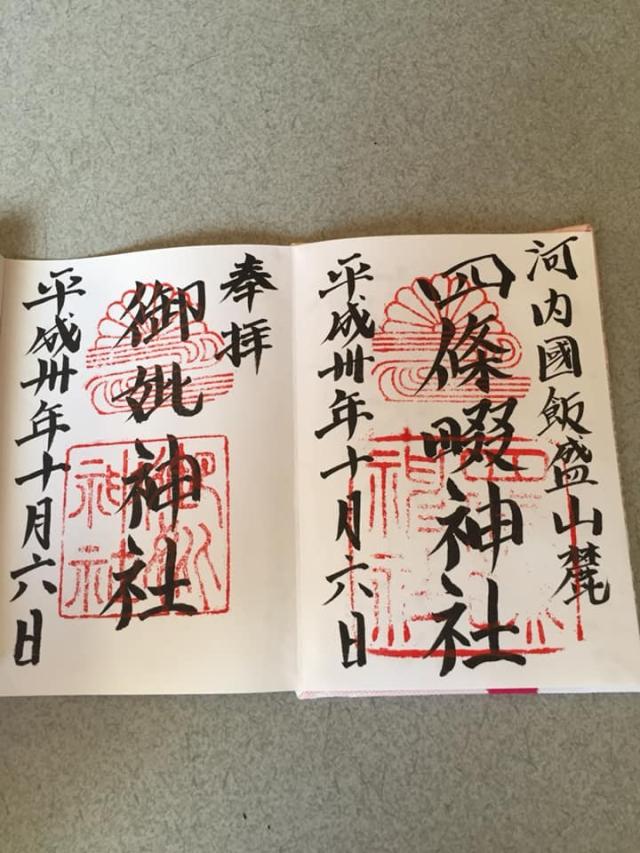 河内國飯盛山麓
四條畷神社
平成卅年十月六日
奉拝
御妣神社
平成卅年十月六日